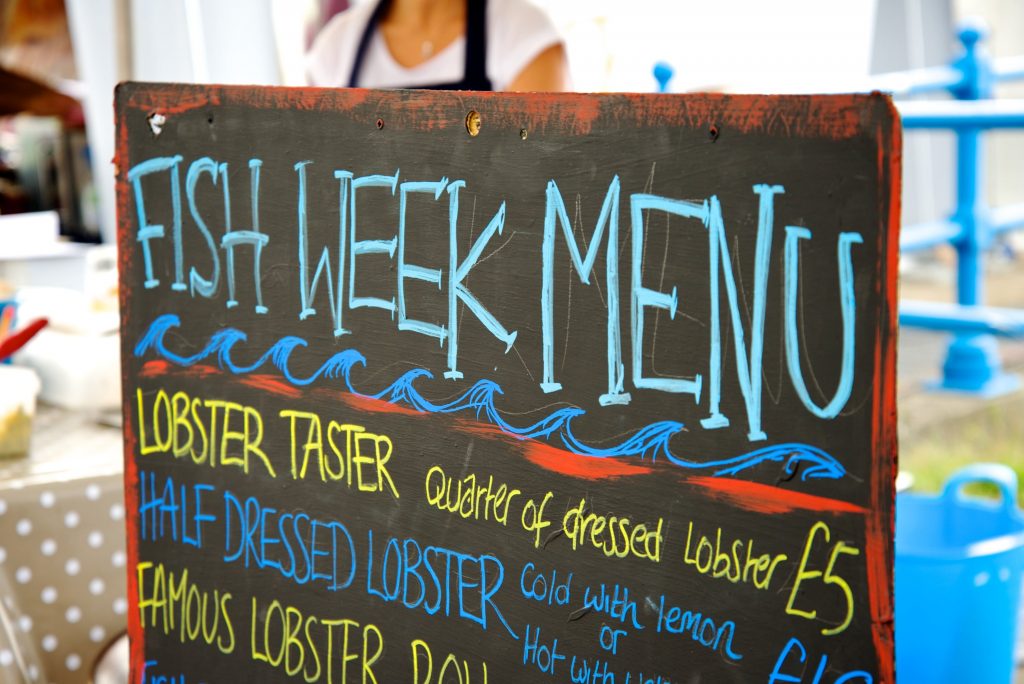 FISH WEEK MENU
LOBSTER TASTER Quarter of dressed Lobster £5
HALF DRESSED LOBSTER Cold with lemon
or
Hot with
FAMOUS LOBSTER
FISH